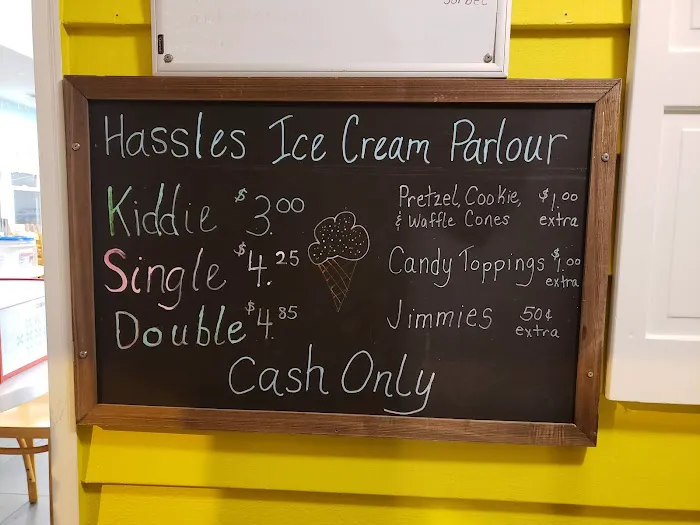 Sorbet
Hassles Ice Cream Parlour
Kiddie $3.00
Single $4.25
Double $4.85
Pretzel, Cookie, $1.00
& Waffle Cones extra
Candy Toppings $1.00
extra
Jimmies 50¢
extra
Cash Only